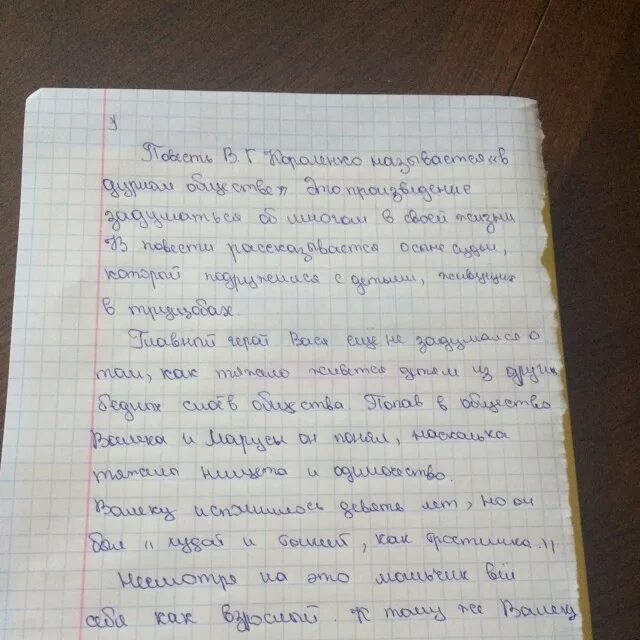 Повесть В.Г Короленко называется «в
дурном обществе» Это произведение
задуматься об многом в своей жизни
В повести рассказывается о сыне судьи,
который подружился с детьми, живущих
в трущобах.
Главной герой Вася еще не задумался о
том, как тяжело живётся детям из других
бедных слоёв общества. Попав в общество
Валека и Маруси он понял, насколька
тяжело нищета и одиночество.
Валеку исполнилось девять лет, но он
был " худой и тонкой, как тростинка."
Несмотря на это мальчик вёл
себя как взрослой. К тому же Валеку